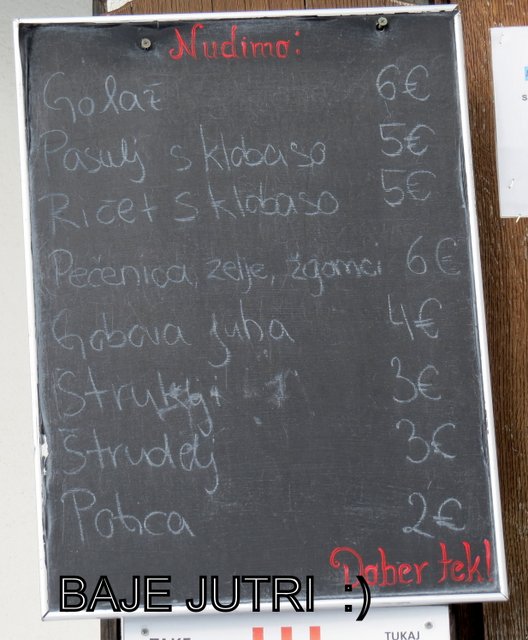 Nudimo:
Golaž 6€
Pasulj s klobaso 5€
Ričet s klobaso 5€
Pečenica, zelje, žganci 6€
Gobova juha 4€
Štruklji 3€
Štrudelj 3€
Potica 2€
Dober tek!
BAJE JUTRI :)
TUKAJ